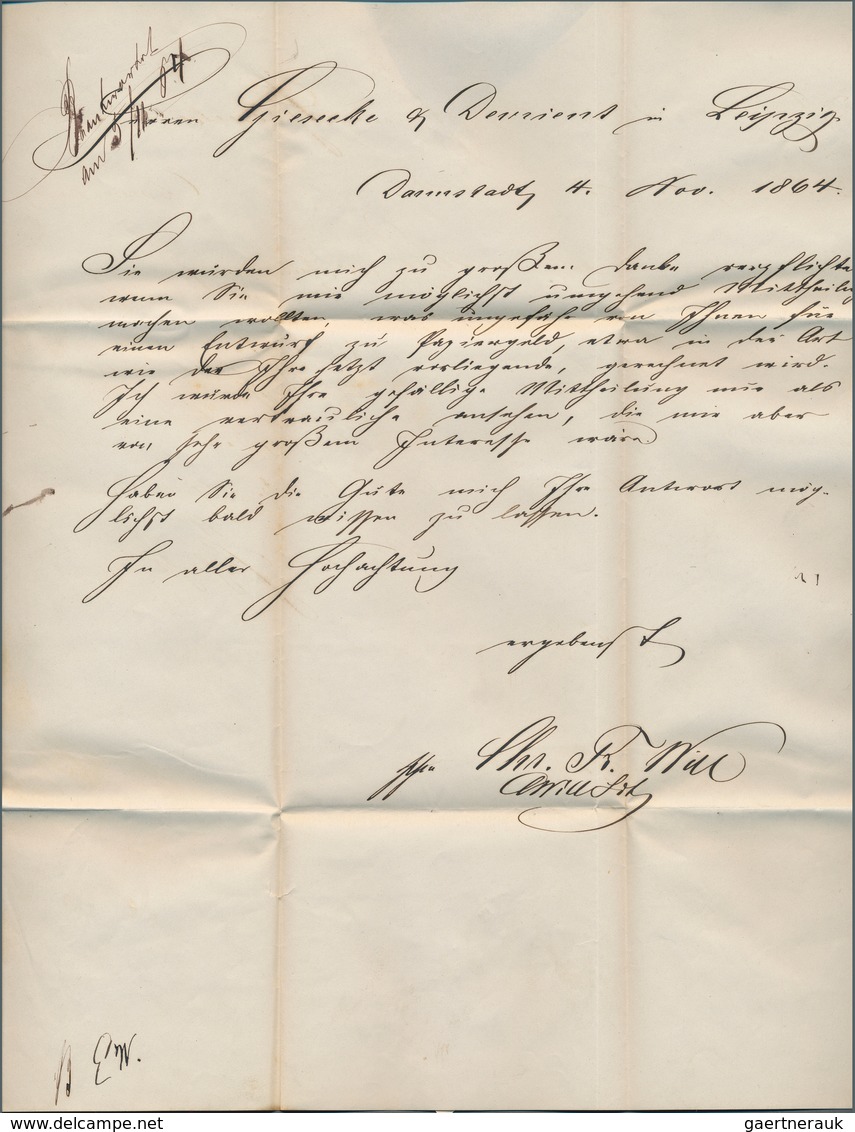 Beantwortet
am 5/11 64.
Herren Giesecke & Devrient in Leipzig
Darmstadt, 4. Nov. 1864.
Sie würden mich zu großem Danke verpflichten
wenn Sie mir möglichst umgehend Mittheilung
machen wollten, was ungefähr von Ihnen für
einen Entwurf zu Papiergeld, etwa in der Art
wie der Ihre jetzt vorliegende, gerechnet wird.
Ich würde Ihre gefällige Mittheilung nur als
eine vertrauliche ansehen, die mir aber
von sehr großem Interesse wäre
Haben Sie die Güte mich Ihre Antwort mög-
lichst bald wissen zu lassen.
In aller Hochachtung
ergebenst
Chr. R. Will
delcampe.net
gaertnerauk